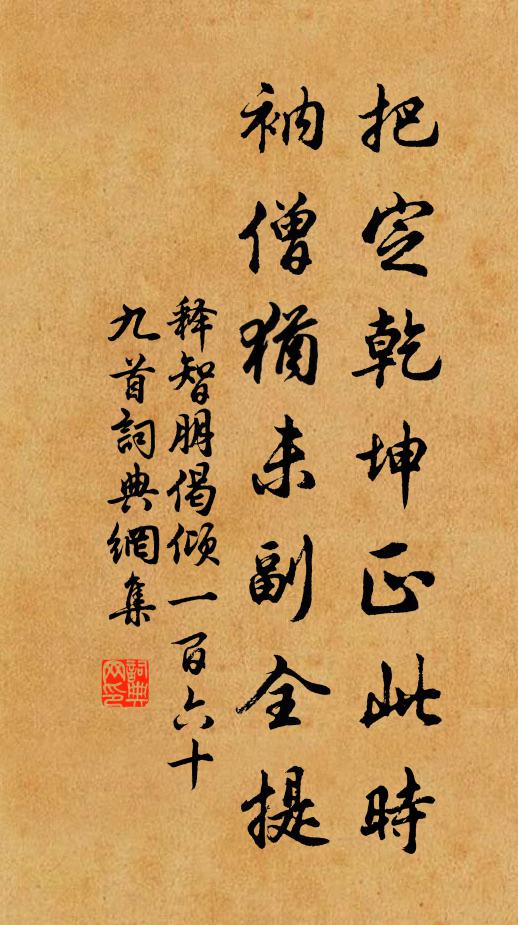 把定乾坤正此時
衲僧猶未副全提
釋智朋偈傾一百六十
九首詞典網集
詞典網印